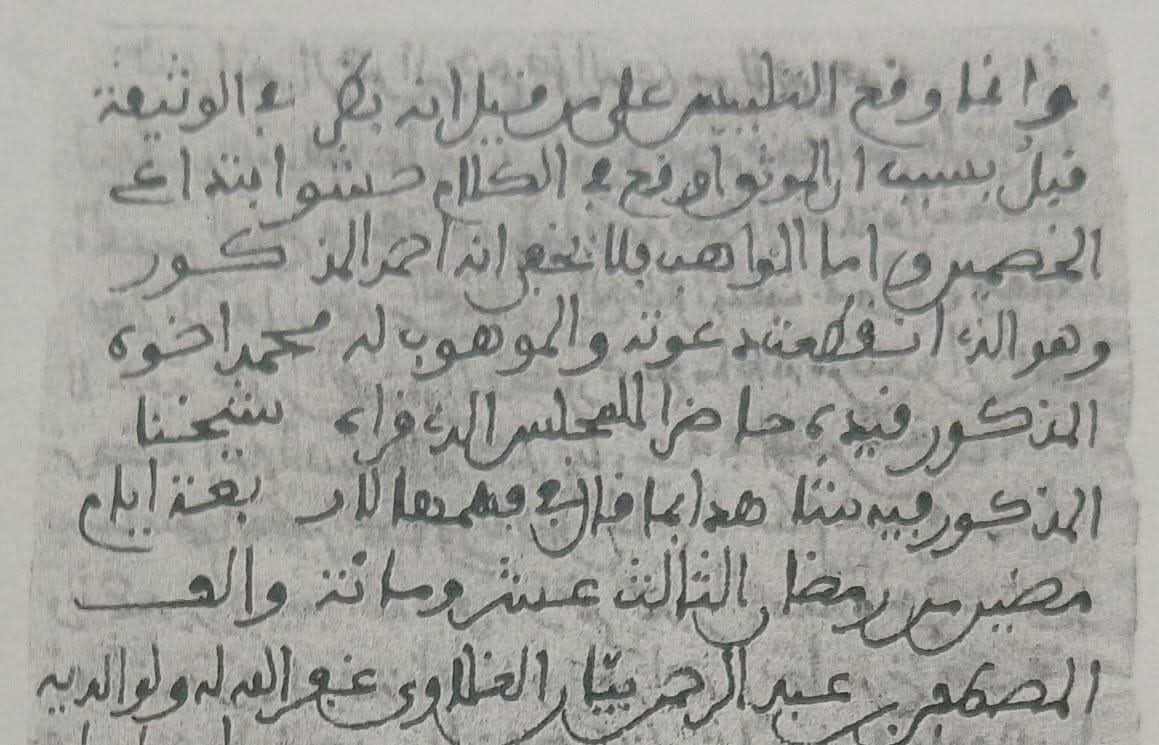 وإنما وقع التلبيس على من قيل انه نظر في الوثيقة
قبل بسبب ان الموثق اوقع في الكلام حشو ابتداعي
الخصمين واما الواهب فلا يخفى انه احمد المذكور
وهو الذي انقطعت دعوته والموهوب له محمد اخوه
المذكور فيدي حاضرا للمجلس الذي قراه شيخنا
المذكور فيه هذا بما قال في فهمها لار بعة ايام
مضين من رمضان الثالث عشر ومائة والف
المصطفى بن عبد الرحمن بيان الغلاوي غفر الله له ولوالديه